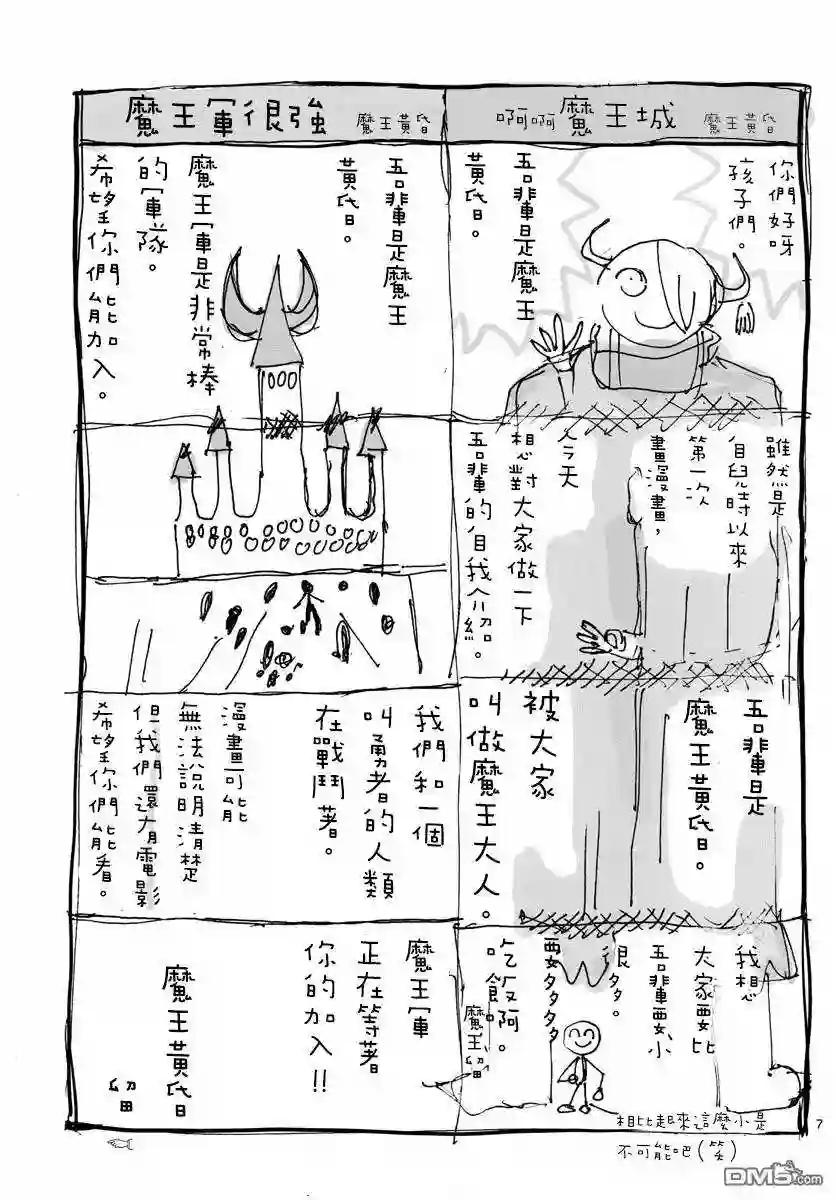 啊啊魔王城 魔王黃昏
你們好呀
孩子們。
吾輩是魔王
黃昏。
雖然是
自兒時以來
第一次
畫漫畫，
今天
想對大家做一下
吾輩的自我介紹。
吾輩是
魔王黃昏。
被大家
叫做魔王大人。
我想
大家要比
吾輩要小
很多。
要多多多多
吃飯啊。
魔王留
相比起來這麼小是
不可能吧(笑)
魔王軍很強 魔王黃昏
吾輩是魔王
黃昏。
魔王軍是非常棒
的軍隊。
希望你們能加入。
我們和一個
叫勇者的人類
在戰鬥著。
漫畫可能
無法說明清楚
但我們還有電影
希望你們能看。
魔王軍
正在等著
你的加入!!
魔王黃昏
留
7
DM5.com